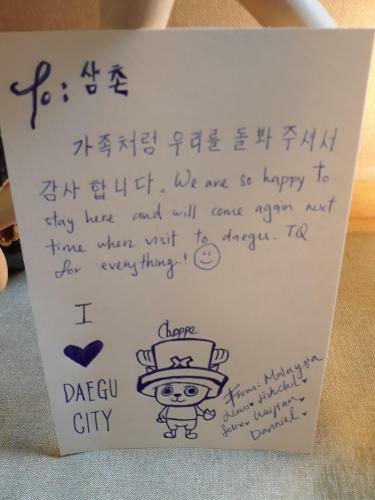 To: 삼촌
가족처럼 우리를 돌봐 주셔서
감사 합니다. We are so happy to
stay here and will come again next
time when visit to daegu. TQ
for everything!
I
DAEGU
CITY
Choppe
From: Malaysia
Danniel